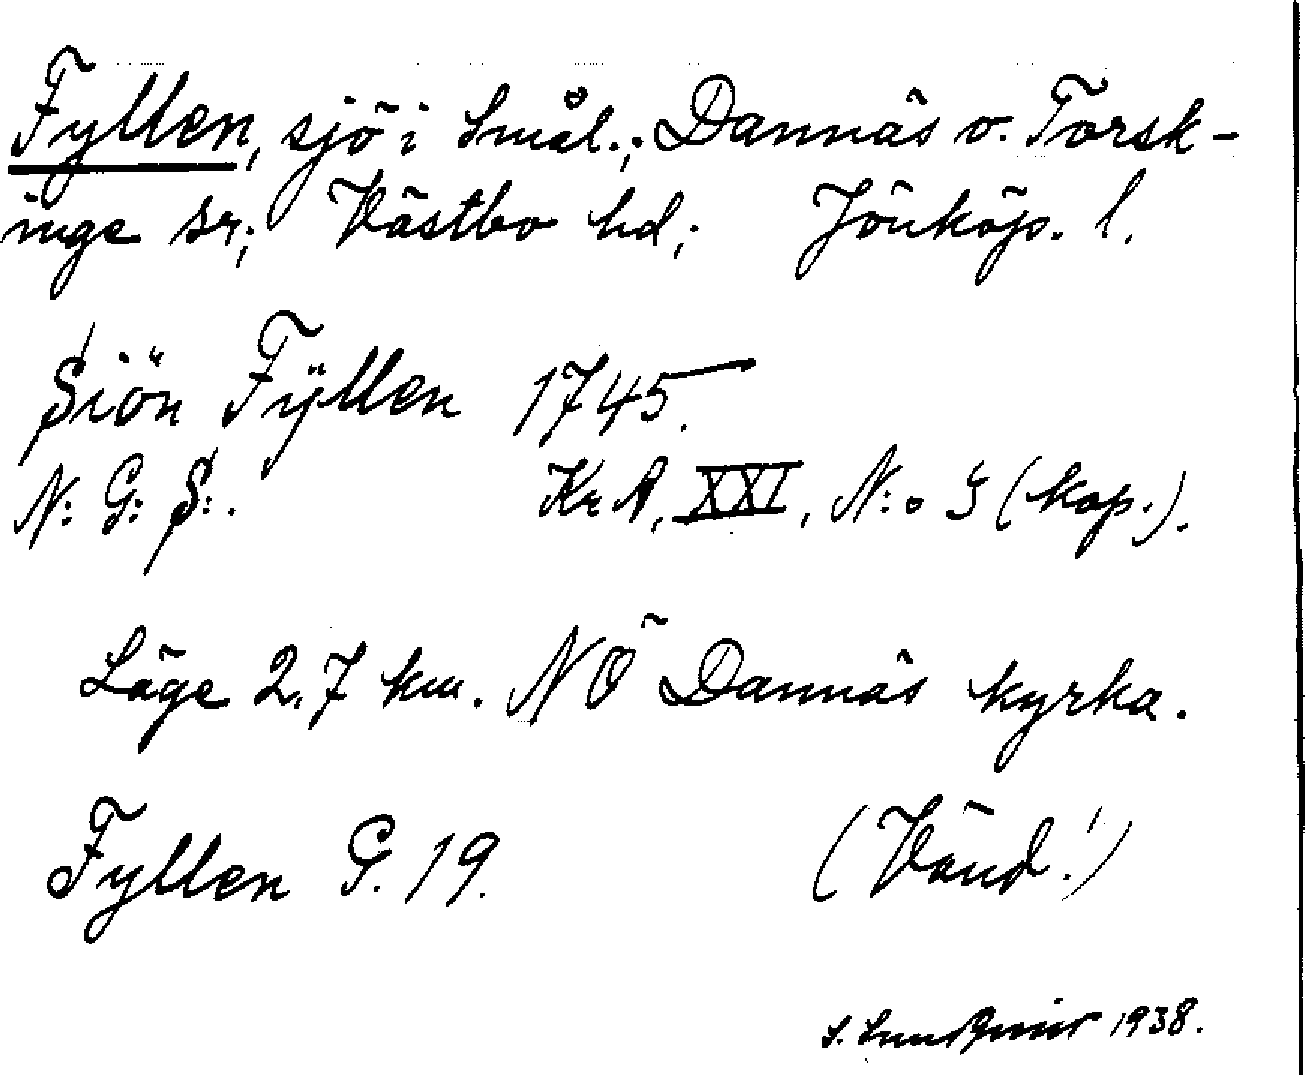 Fyllen, sjö i Smål.; Dannäs o. Torsk-
inge sr; Västbo hd; Jönköp. l.
Siön Fÿllen 1745.
N: G: S:.
KrA, XXI, N:o 9 (kop.).
Läge 2,7 km. NÖ Dannäs kyrka.
Fyllen G. 19.
(Vänd!)
1938.